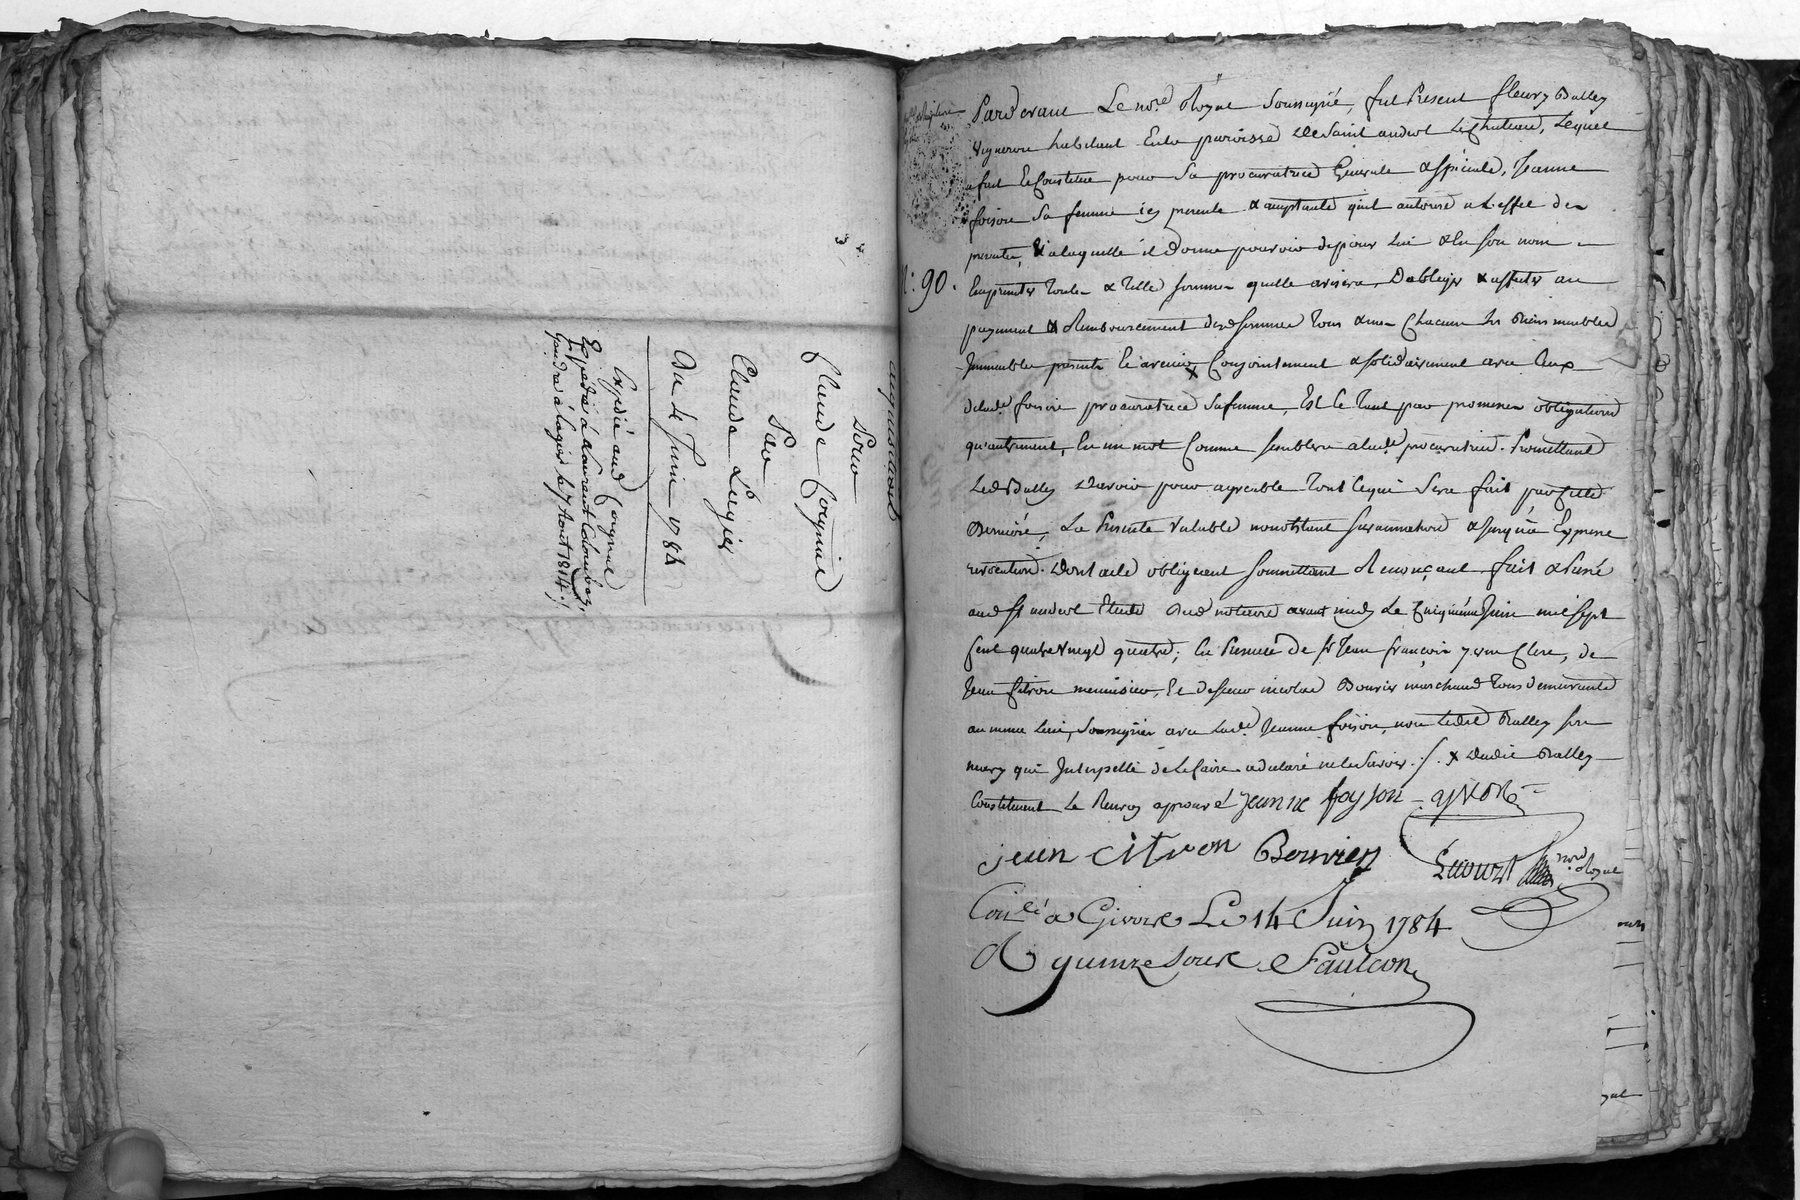 acquisition
Pour
Claude Coignie
Par
Claude Lugier
Du 4e Juin 1784
Expédié aud Coignie
Expédié à Laurent Colombay,
gendre à Lagier le 7 Aout 1814 ./.
34
N: 90.
Pardevant Le no.re Royal Soussigné, fut Present fleury Balley
vigneron habitant En la paroisse de Saint andeol Le Chateau, Lequel
a fait Et Constitue pour Sa procuratrice Generale & spéciale, Jeanne
foison Sa femme icy presente & acceptante quil autorise a L'effet des
presentes, & a laquelle il donne pouvoir de pour Lui & En Son nom
Emprunter Toutes & Telles sommes quelle avisera, D'obliger & affecter au
payement & Remboursement desd sommes Tous & uns Chacuns Ses Biens meubles
Immeubles presents Et avenir x Conjointement & solidairement avec Ceux
de lad.e foison procuratrice Sa femme, Et Ce Tant par promesses obligations
qu'autrement, En un mot Comme semblera a lad.e procuratrice. Promettant
Led Balley D'avoir pour agreable Tout Ce qui Sera fait par Cette
Derniere, La Presente Valable nonobstant Surannation & jusqu'a Expresse
revocation. Dont acte obligeant soumettant Renonçant fait & Passé
aud St andeol Etude Dud notaire avant midy Le Cinquieme Juin mil sept
Cent quatre vingt quatre, En Presence de Sr Jean françois yvon Clerc, de
Jean Citron menuisier, Et de Sieur nicolas Bouvier marchand Tous demeurants
au meme Lieu, Soussignés avec Lad.e Jeanne foison, non Ledit Balley son
mary qui Interpellé de Le faire a declaré ne le Savoir ./. x Dudit Balley
Constituant Le Renvoy aprouvé Jeanne foyson yvon
jean citron Bouvier
no.re Royal
Con.lé a Givors Le 14 Juin 1784
R quinze Sous Faulcon